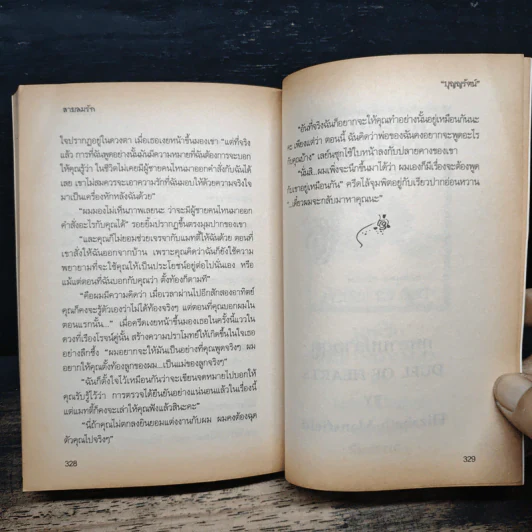 สายลมรัก
ใจปรากฏอยู่ในดวงตา เมื่อเธอเงยหน้าขึ้นมองเขา "แต่ที่จริง
แล้ว การที่ฉันพูดอย่างนั้นมันมีความหมายที่ฉันต้องการจะบอก
ให้คุณรู้ว่า ในชีวิตไม่เคยมีผู้ชายคนไหนมาออกคำสั่งกับฉันได้
เลย เขาไม่สมควรจะเอาความรักที่ฉันมอบให้ด้วยความจริงใจ
มาเป็นเครื่องหักหลังฉันด้วย"
"ผมมองไม่เห็นภาพเลยนะ ว่าจะมีผู้ชายคนไหนมาออก
คำสั่งอะไรกับคุณได้" รอยยิ้มปรากฏขึ้นตรงมุมปากของเขา
"และคุณก็ไม่ยอมช่วยเจรจากับแมทตี้ให้ฉันด้วย ตอนที่
เขาสั่งให้ฉันออกจากบ้าน เพราะคุณคิดว่าฉันก็ยังใช้ความ
พยายามที่จะใช้คุณให้เป็นประโยชน์อยู่ต่อไปนั่นเอง หรือ
แม้แต่ตอนที่ฉันบอกกับคุณว่า ตั้งท้องก็ตามที"
"คือผมมีความคิดว่า เมื่อเวลาผ่านไปอีกสักสองอาทิตย์
คุณก็คงจะรู้ตัวเองว่าไม่ได้ท้องจริงๆ แต่ตอนที่คุณบอกผมใน
ตอนแรกนั้น..." เมื่อครีดเงยหน้าขึ้นมองเธอในครั้งนี้แววใน
ดวงที่เรืองโรจน์คู่นั้น สร้างความปราโมทย์ให้เกิดขึ้นในใจเธอ
อย่างลึกซึ้ง "ผมอยากจะให้มันเป็นอย่างที่คุณพูดจริงๆ ผม
อยากให้คุณตั้งท้องลูกของผม...เป็นแม่ของลูกจริงๆ"
"ฉันก็ตั้งใจไว้เหมือนกันว่าจะเขียนจดหมายไปบอกให้
คุณรับรู้ไว้ว่า การตรวจได้ยืนยันอย่างแน่นอนแล้วในเรื่องนี้
แต่แมทตี้ก็คงจะเล่าให้คุณฟังแล้วสินะคะ"
"นี่ถ้าคุณไม่ตกลงยินยอมแต่งงานกับผม ผมคงต้องฉุด
ตัวคุณไปจริงๆ"
328
"บุญญรัตน์"
"อันที่จริงฉันก็อยากจะให้คุณทำอย่างนั้นอยู่เหมือนกันนะ
คะ เพียงแต่ว่า ตอนนี้ ฉันคิดว่าพ่อของฉันคงอยากจะพูดอะไร
กับคุณบ้าง" เลย์นซุกไซ้ใบหน้าลงกับปลายคางของเขา
"นั่นสิ...ผมเพิ่งจะนึกขึ้นมาได้ว่า ผมเองก็มีเรื่องจะต้องพูด
กับเขาอยู่เหมือนกัน" ครีดโล้จุมพิตอยู่กับเรียวปากอ่อนหวาน
"...เดี๋ยวผมจะกลับมาหาคุณนะ"
329